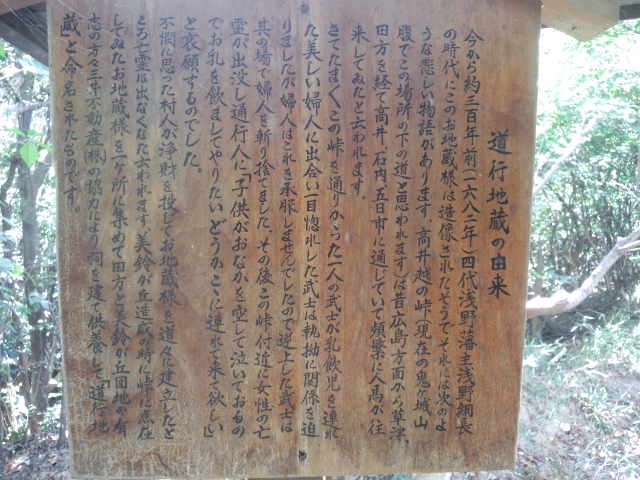 道行地蔵の由来
今から約三百年前(一六八二年)四代浅野藩主浅野綱長
の時代にこのお地蔵様は造像されたそうでそれには次のよ
うな悲しい物語があります。高井越の峠(現在の鬼ヶ城山
腹でこの場所の下の道と思われます)は昔広島方面から草津、
田方を経て高井、石内、五日市に通じていて頻繁に人馬が往
来してみたと云われます。
さてたま〱この峠を通りかかった一人の武士が乳飲児を連れ
た美しい婦人に出会い一目惚れした武士は執拗に関係を迫
りましたが婦人はこれを承服しませんでしたので逆上した武士は
其の場で婦人を斬り捨てました。その後この峠付近に女性の亡
霊が出没し通行人に「子供がおなかを空して泣いておるの
でお乳を飲ましてやりたいどうかこゝに連れて来て欲しい」
と哀願するのでした。
不憫に思った村人が浄財を投じてお地蔵様を道々に建立したと
ころ亡霊は出なくなった云われます。美鈴が丘造成の時に峠に点在
してみたお地蔵様を一ヶ所に集めて田方と美鈴が丘団地の有
志の方々三井不動産(株)の協力により祠を建て供養して「道行地
蔵」と命名されたものです。